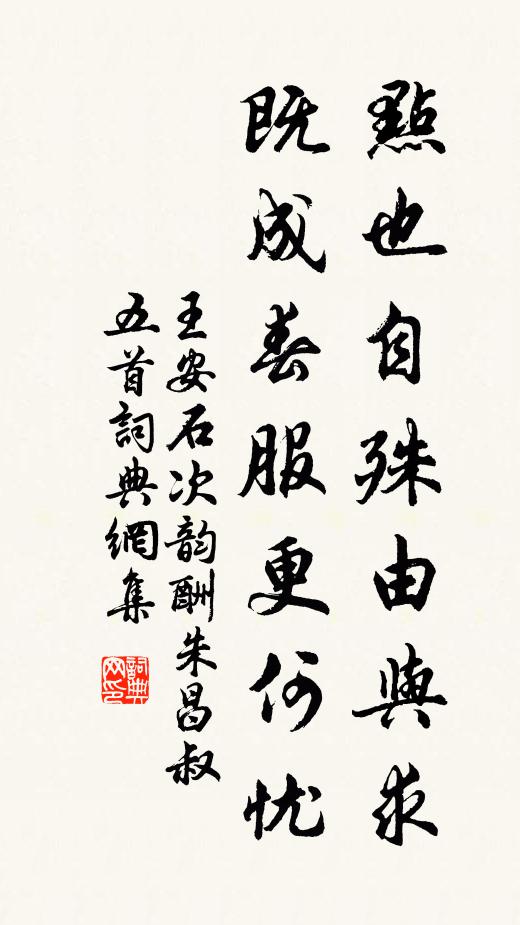 點也自殊由與求
既成春服更何忧
王安石次韵酬朱昌叔
五首詞典網集
詞典網印